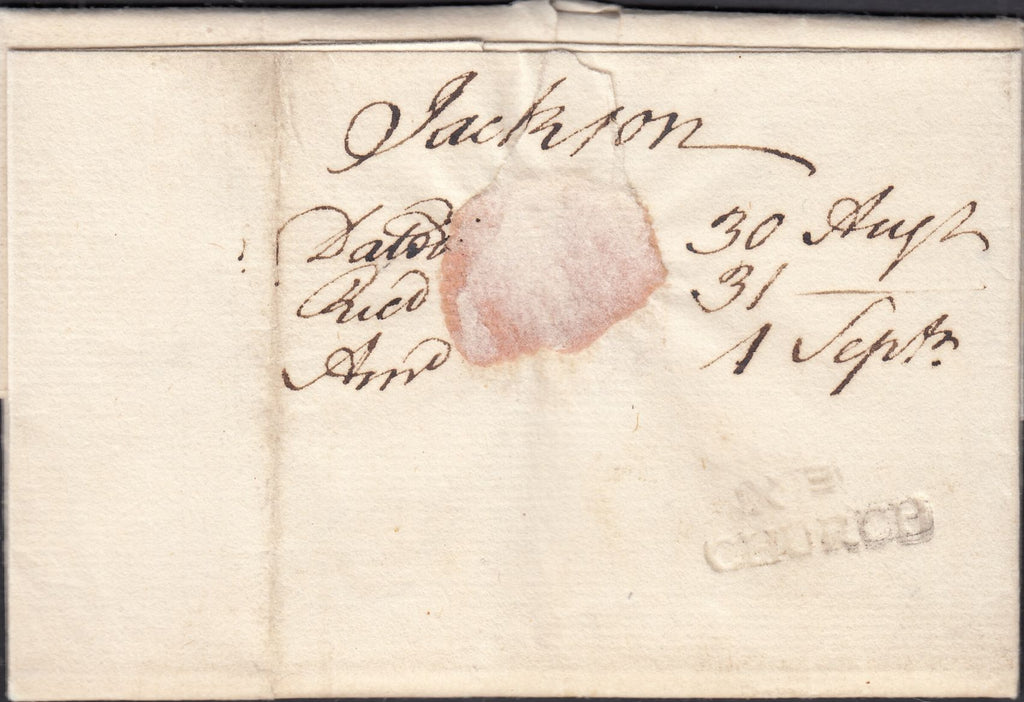 Jackson
Dated 30 Augt
Recd 31
Ansd 1 Septr
CHURCH